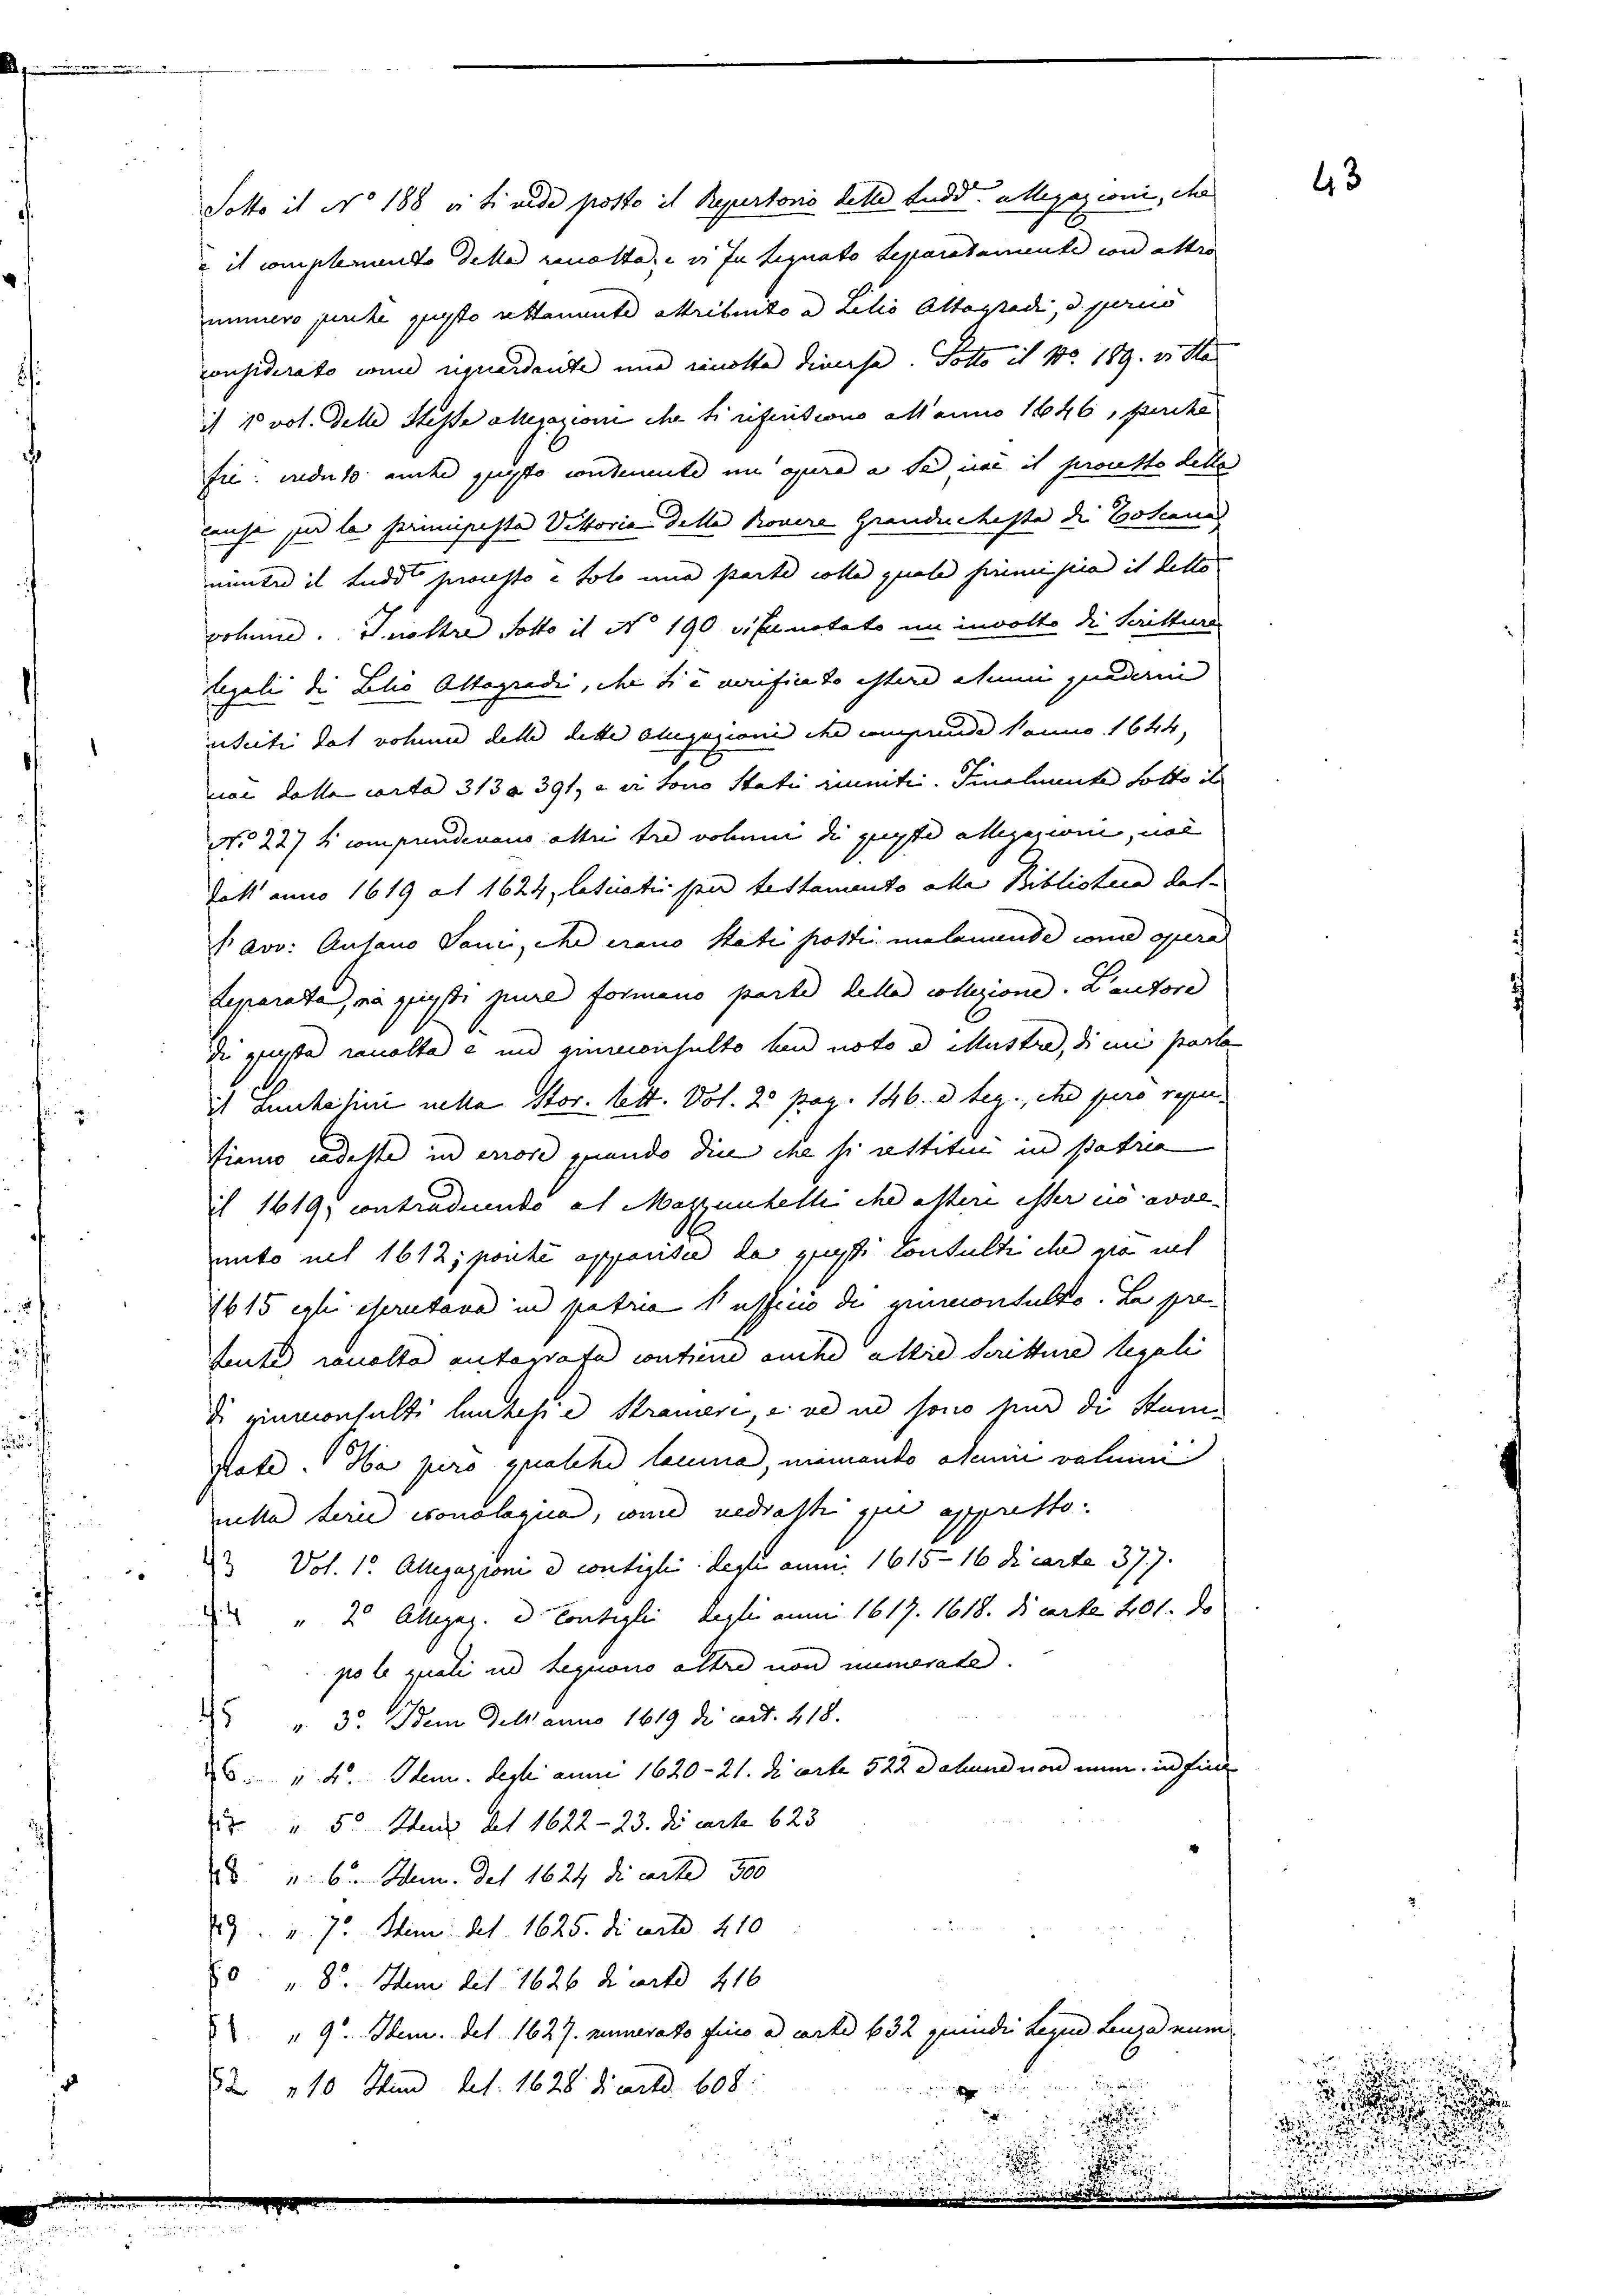 43
Sotto il N° 188 vi si vede posto il Repertorio delle sudd.e allegazioni, che
è il complemento della raccolta, e vi fu segnato separatamente con altro
numero perchè questo rettamente attribuito a Lelio Altogradi, e perciò
considerato come riguardante una raccolta diversa. Sotto il No. 189. vi sta
il 1° vol. delle stesse allegazioni che si riferiscono all'anno 1646, perche
fu creduto anche questo contenente un' opera a se, cioè il processo della
causa per la principessa Vittoria della Rovere Granduchessa di Toscana
mentre il sudd.to processo è solo una parte colla quale principia il detto
volume. Inoltre sotto il N° 190 vi fu notato un involto di Scritture
legali di Lelio Altogradi, che si è verificato essere alcuni quaderni
usciti dal volume delle dette allegazioni che comprende l'anno 1644,
cioè dalla carta 313 a 391, e vi sono stati riuniti. Finalmente sotto il
N° 227 si comprendevano altri tre volumi di queste allegazioni, cioè
dall' anno 1619 al 1624, lasciati per testamento alla Biblioteca dal-
l' avv: Ansano Sani, che erano stati posti malamente come opera
separata, ma questi pure formano parte della collezione. L'autore
di questa raccolta è un giureconsulto ben noto e illustre, di cui parla
il Lucchesini nella Stor. lett. Vol. 2° pag. 146. e seg., che però repu-
tiamo cadesse in errore quando dice che si restituì in patria
il 1619, contradicendo al Mazzuchelli che asserì esser ciò avve-
nuto nel 1612; poichè apparisce da questi Consulti che già nel
1615 egli esercitava in patria l' ufficio di giureconsulto. La pre-
sente raccolta autografa contiene anche altre Scritture legali
di giureconsulti lucchesi e stranieri, e ve ne sono pur di stam-
pate. Ha però qualche lacuna, mancando alcuni volumi
nella serie cronologica, come vedrassi qui appresso:
43 Vol. 1° Allegazioni e consigli degli anni 1615-16 di carte 377.
44 " 2° Allegaz. e Consigli degli anni 1617. 1618. di carte 401. do
po le quali ne seguono altre non numerate.
45 " 3° Idem dell'anno 1619 di cart. 418.
46. " 4° Idem. degli anni 1620-21. di carte 522 e alcune non num. in fine
47 " 5° Idem del 1622-23. di carte 623
48 " 6° Idem. del 1624 di carte 500
49. " 7° Idem del 1625. di carte 410
50 " 8° Idem del 1626 di carte 416
51 " 9° Idem. del 1627. numerato fino a carte 632 quindi segue senza num
52 " 10 Idem del 1628 di carte 608